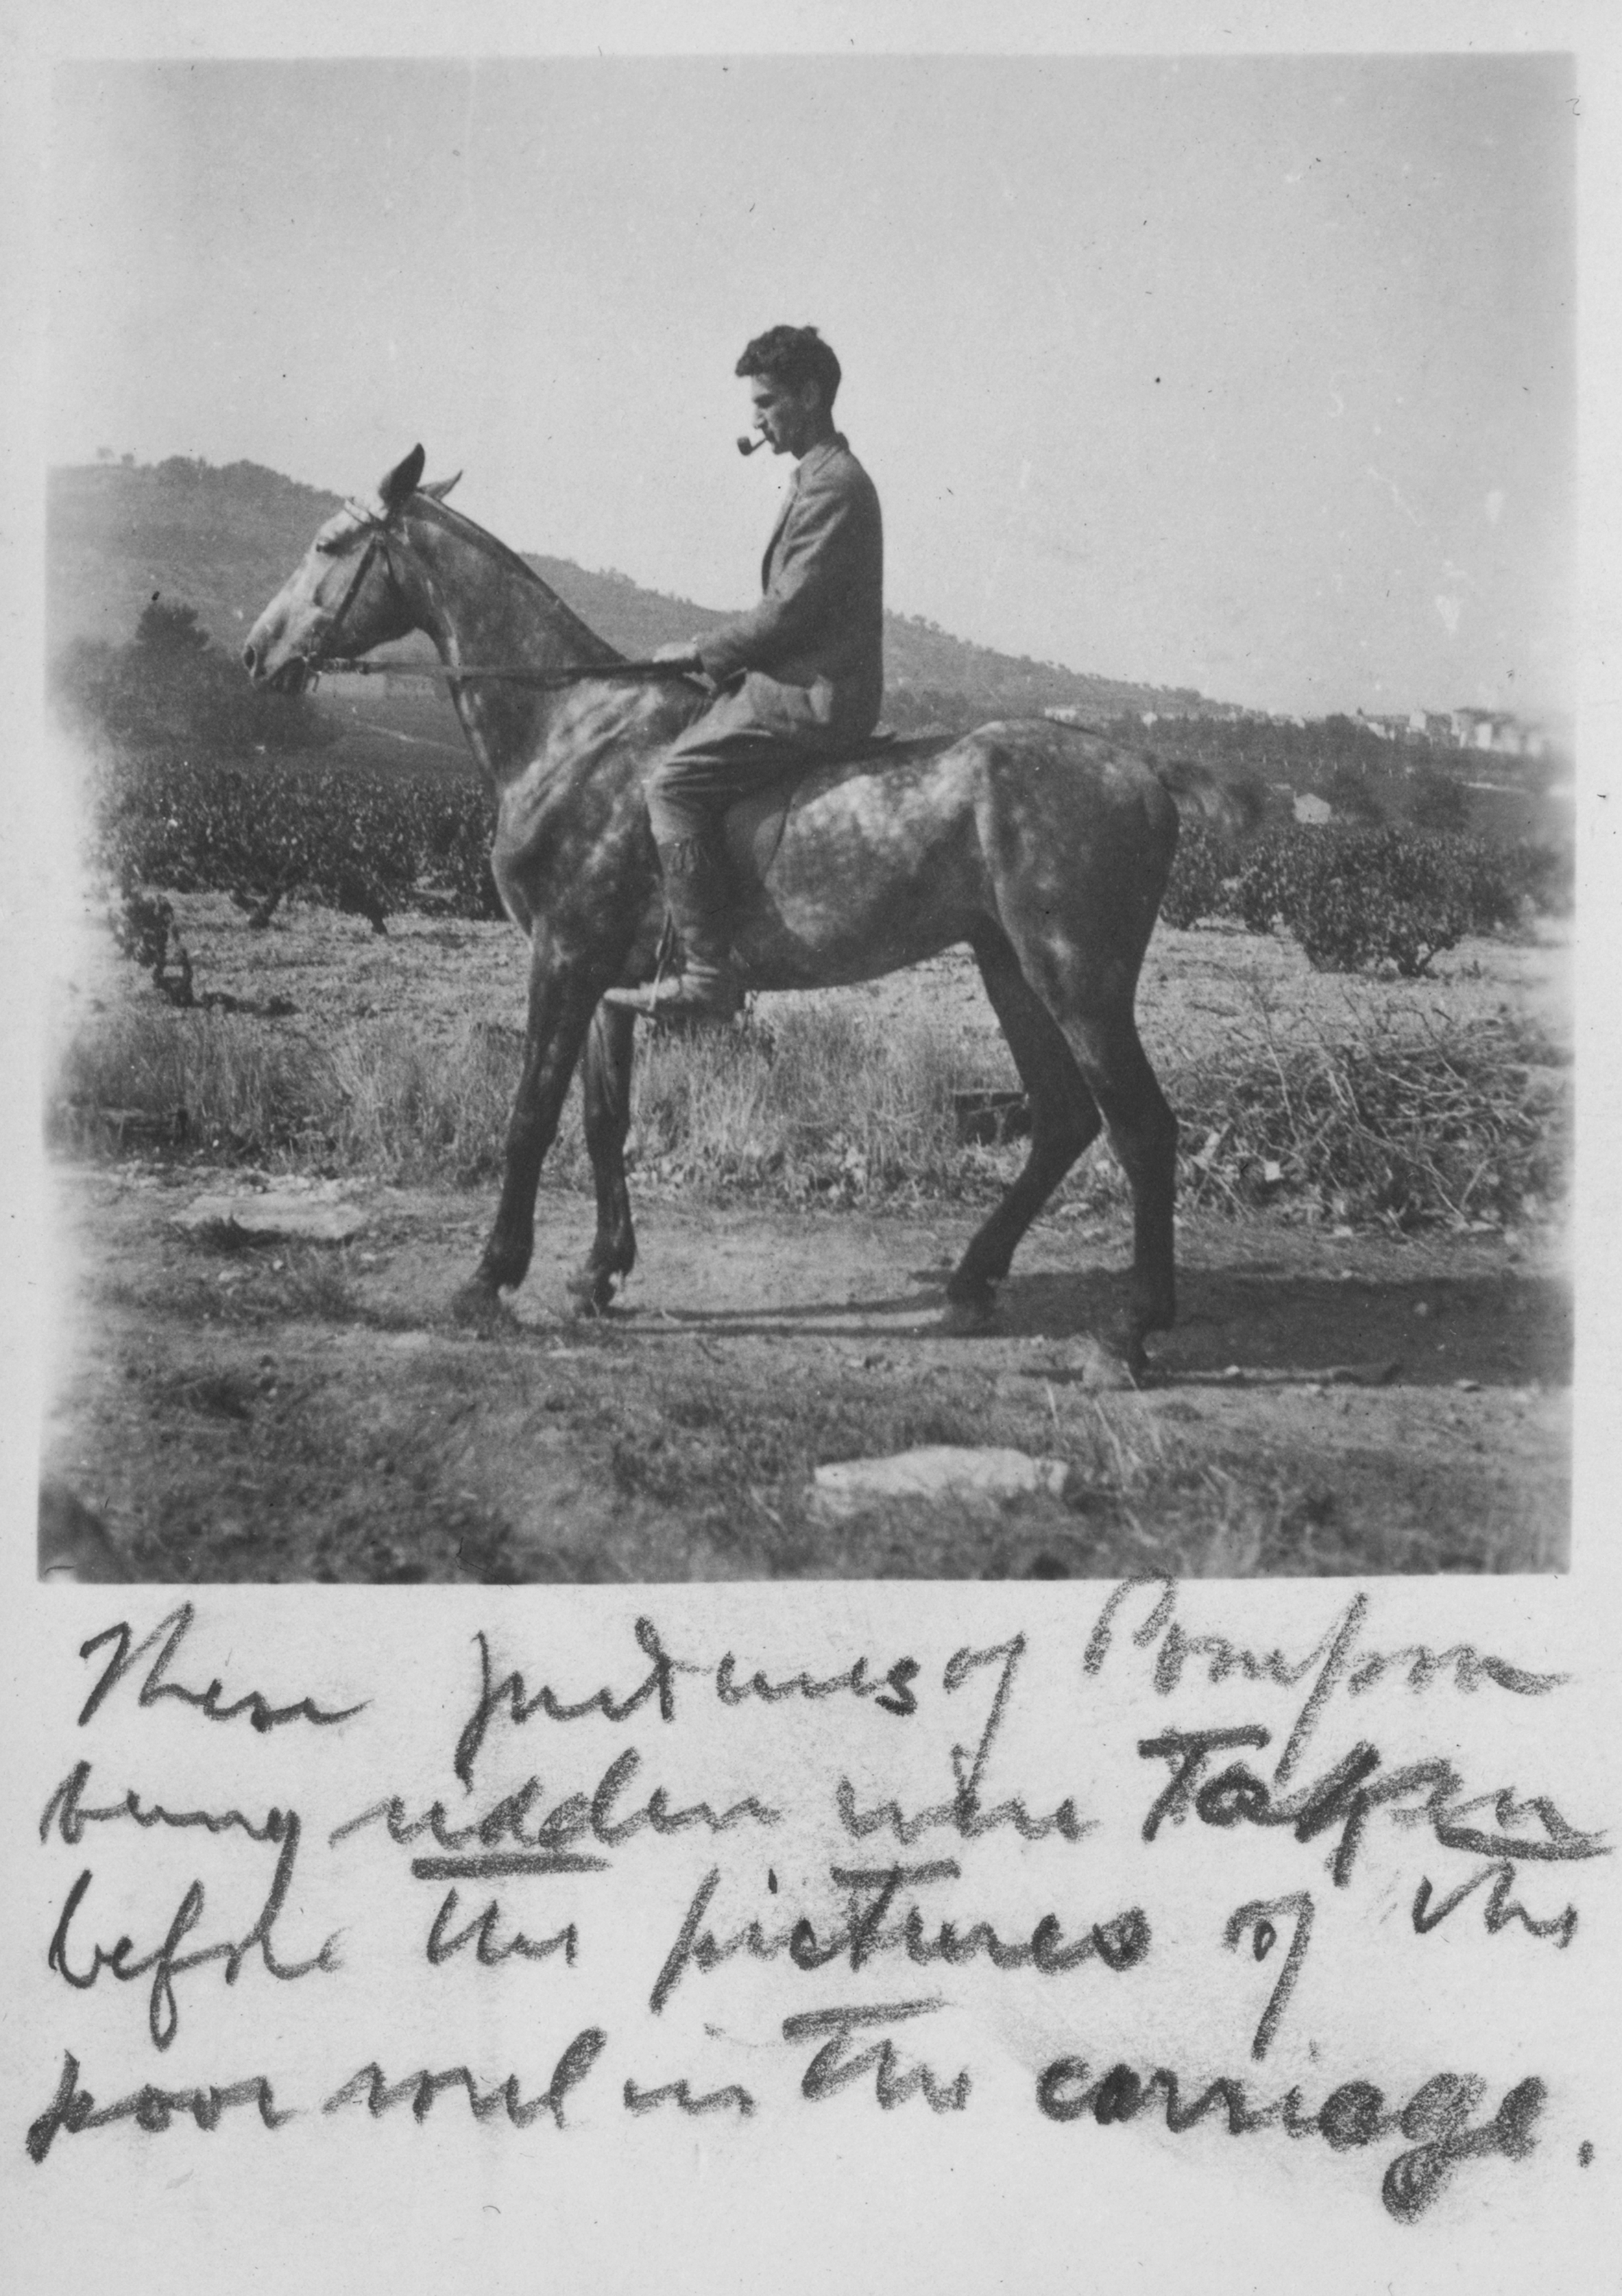 These pictures of Pompon
being ridden were Taken
before the pictures of the
poor soul in the carriage.